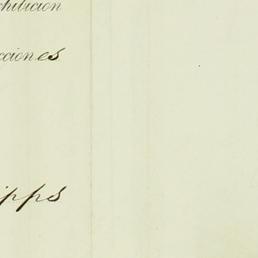 hibicion
cciones
ipps